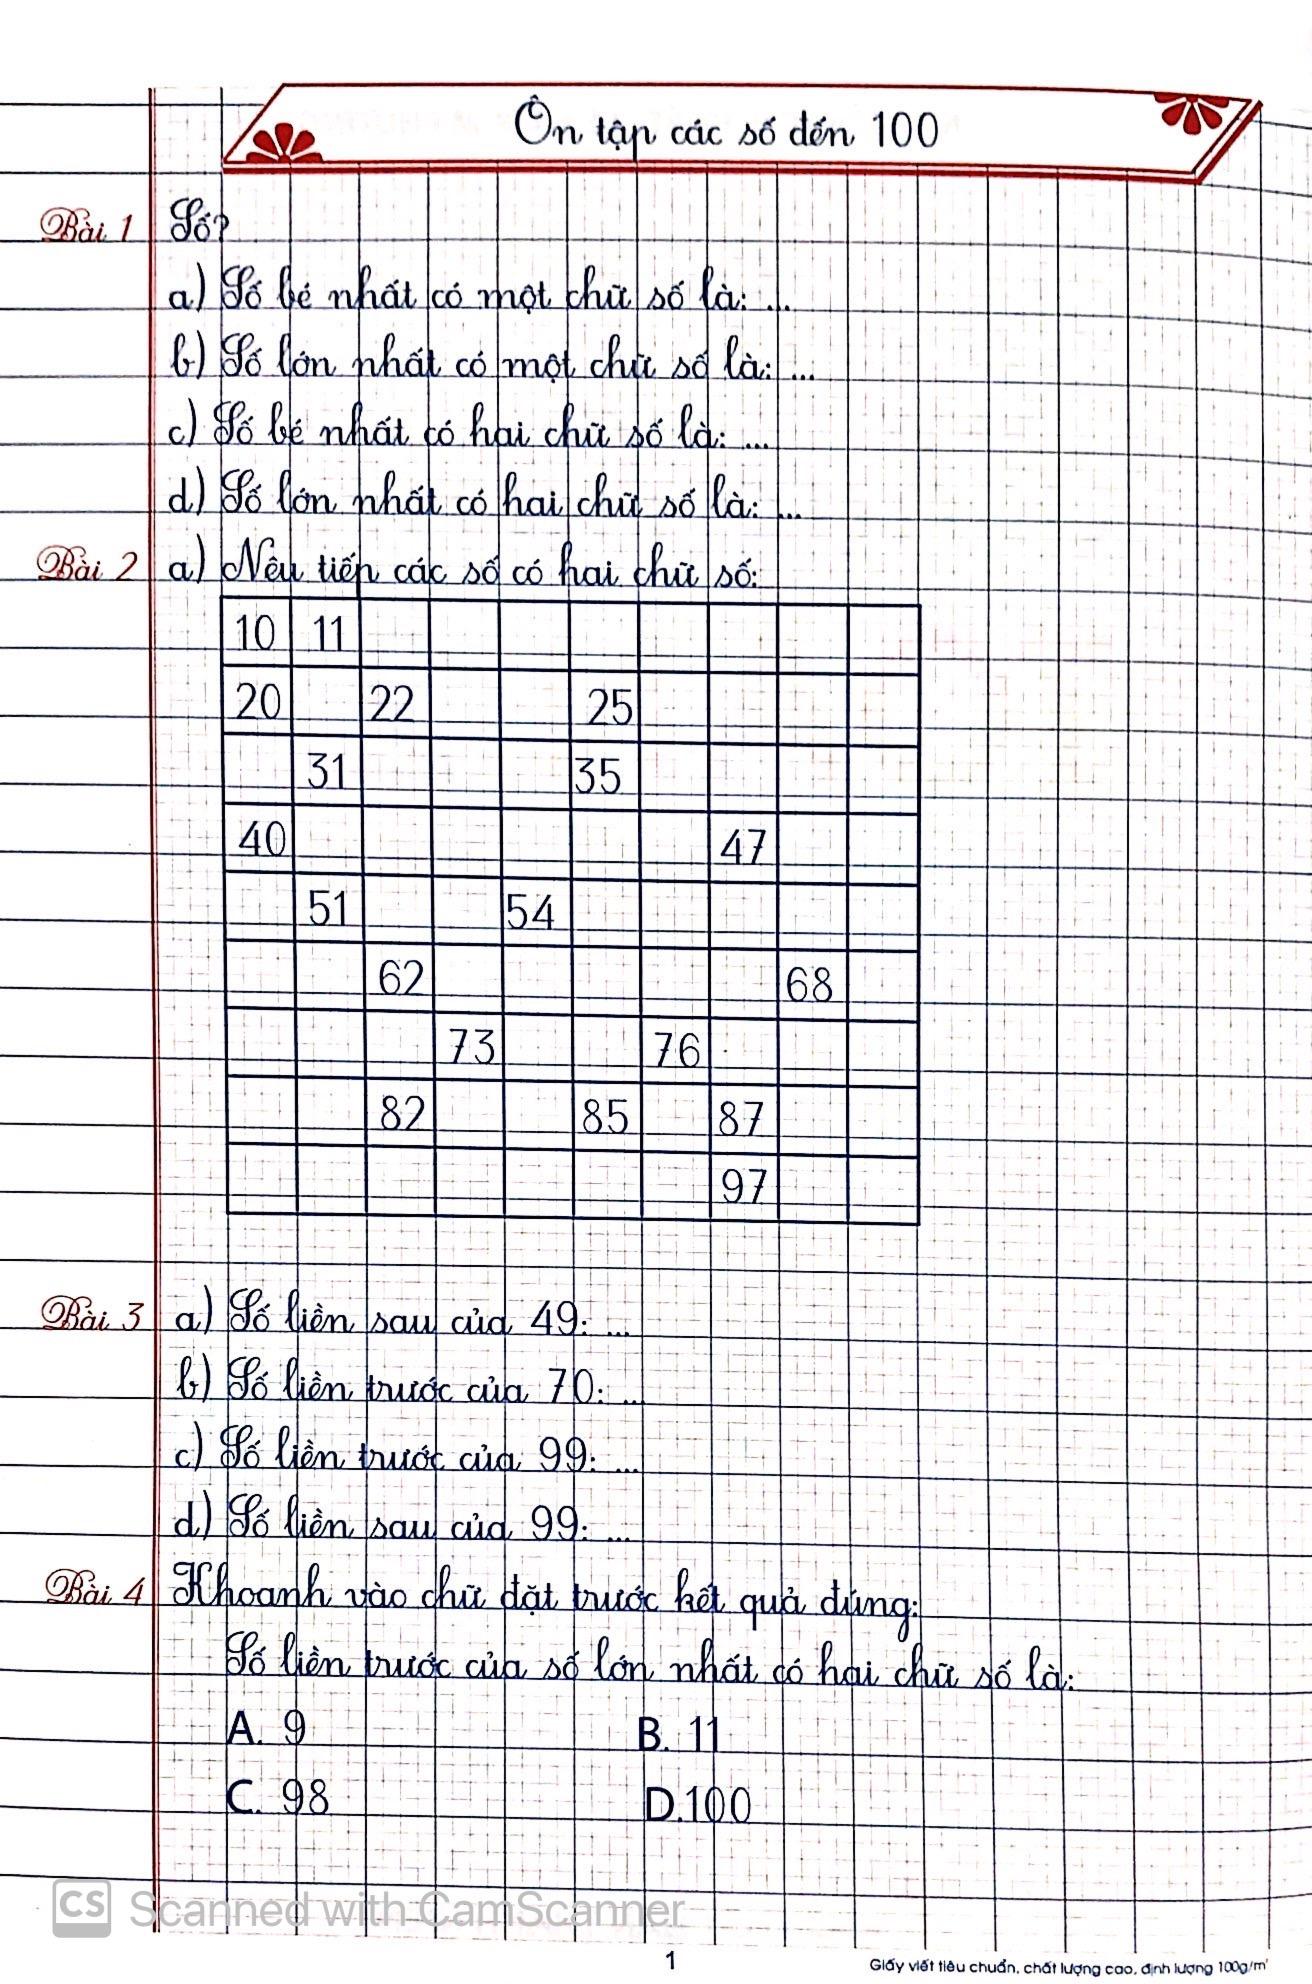 Ôn tập các số đến 100
Bài 1 Số?
a) Số bé nhất có một chữ số là: ...
b) Số lớn nhất có một chữ số là: ...
c) Số bé nhất có hai chữ số là: ...
d) Số lớn nhất có hai chữ số là: ...
Bài 2 a) Nêu tiếp các số có hai chữ số:
10 11
20 22 25
31 35
40 47
51 54
62 68
73 76
82 85 87
97
Bài 3 a) Số liền sau của 49: ...
b) Số liền trước của 70: ...
c) Số liền trước của 99: ...
d) Số liền sau của 99: ...
Bài 4 Khoanh vào chữ đặt trước kết quả đúng:
Số liền trước của số lớn nhất có hai chữ số là:
A. 9 B. 11
C. 98 D.100
CS Scanned with CamScanner
1 Giấy viết tiêu chuẩn, chất lượng cao, định lượng 100g/m²